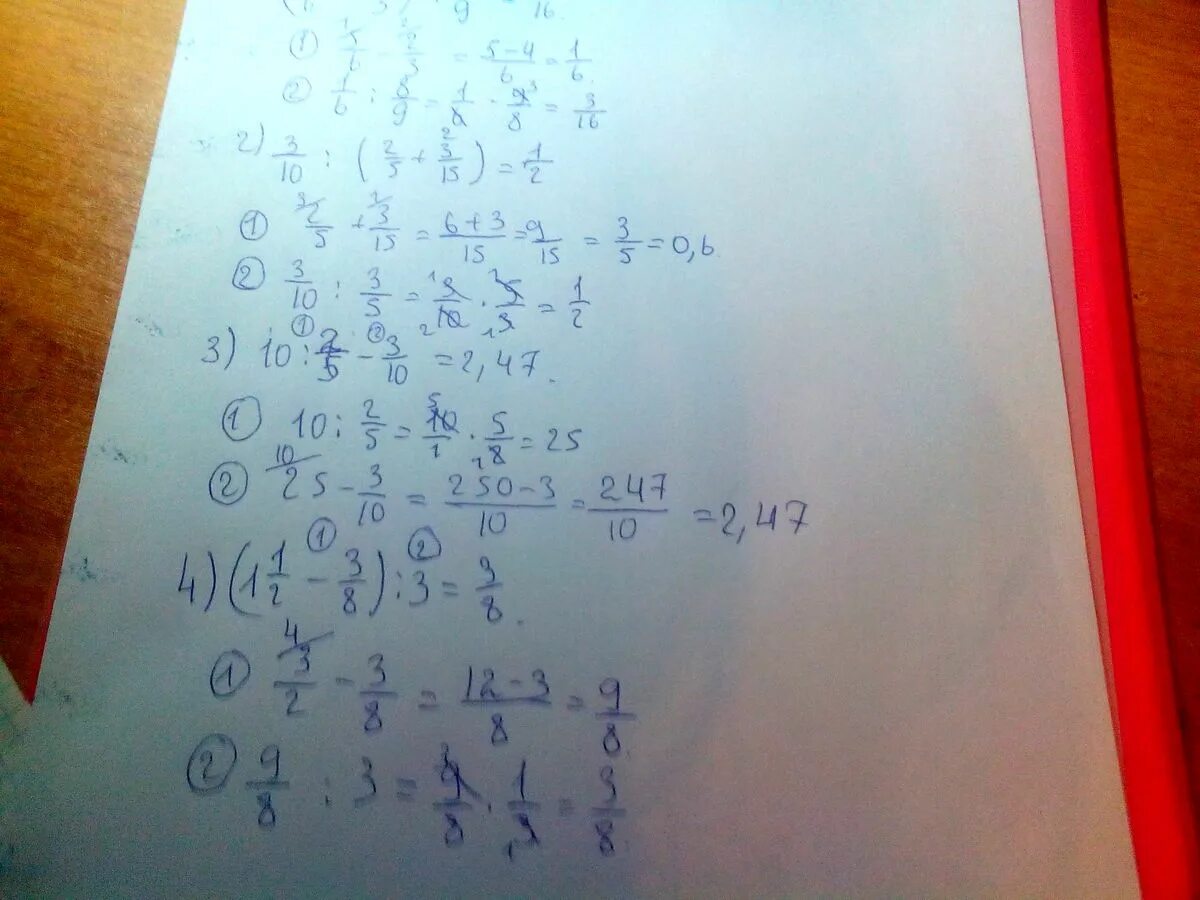 9 16
① 5/6 - 2/3 = (5-4)/6 = 1/6
② 1/6 : 8/9 = 1/6 · 9/8 = 3/16
2) 3/10 : (2/5 + 3/15) = 1/2
① 2/5 + 3/15 = (6+3)/15 = 9/15 = 3/5 = 0,6
② 3/10 : 3/5 = 3/10 · 5/3 = 1/2
3) 10 : 2/5 - 3/10 = 2,47.
① 10 : 2/5 = 10/1 · 5/8 = 25
② 25 - 3/10 = (250-3)/10 = 247/10 = 2,47
4) (1 1/2 - 3/8) : 3 = 3/8.
① 3/2 - 3/8 = (12-3)/8 = 9/8
② 9/8 : 3 = 9/8 · 1/3 = 3/8